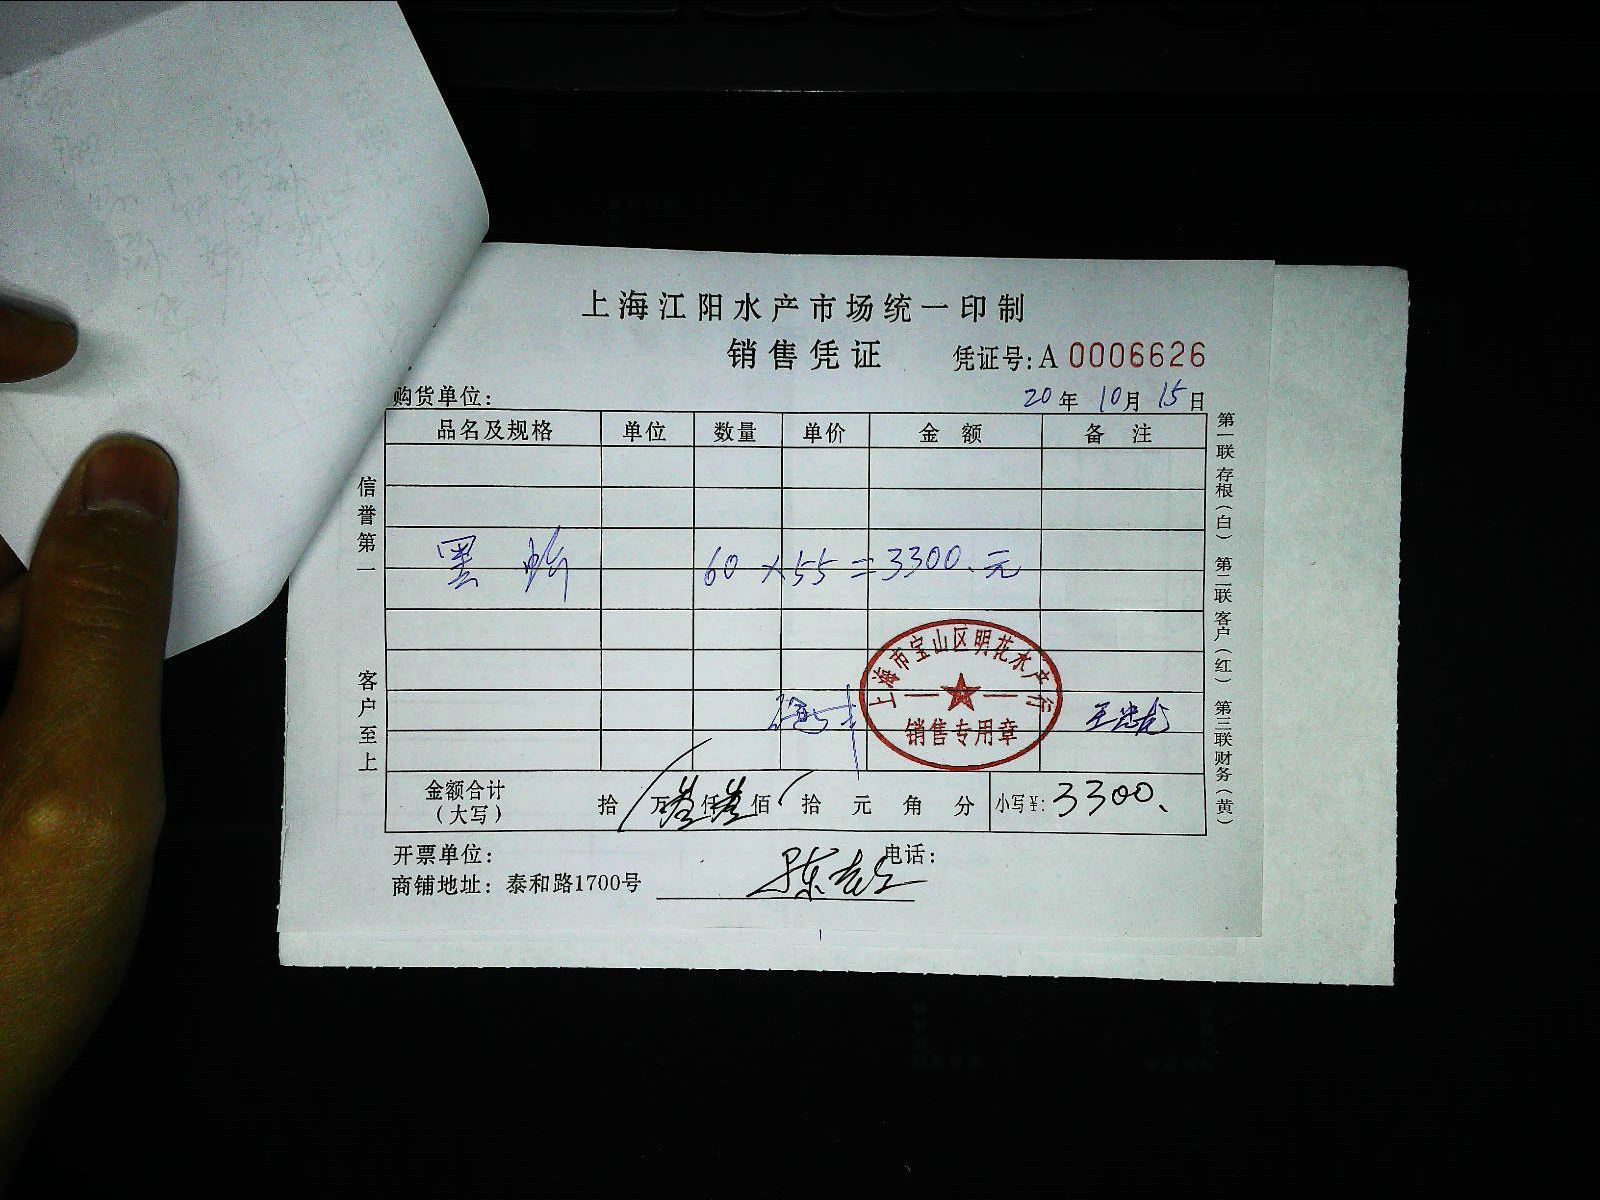 上海江阳水产市场统一印制
销售凭证 凭证号:A 0006626
购货单位: 20年 10月 15日
品名及规格 单位 数量 单价 金额 备注
黑 60×55=3300.元
上海市宝山区明花水产行
销售专用章
金额合计(大写) 拾 万叁仟叁佰 拾 元 角 分 小写¥: 3300.
开票单位: 电话:
商铺地址: 泰和路1700号
信誉第一 客户至上
第一联存根(白) 第二联客户(红) 第三联财务(黄)